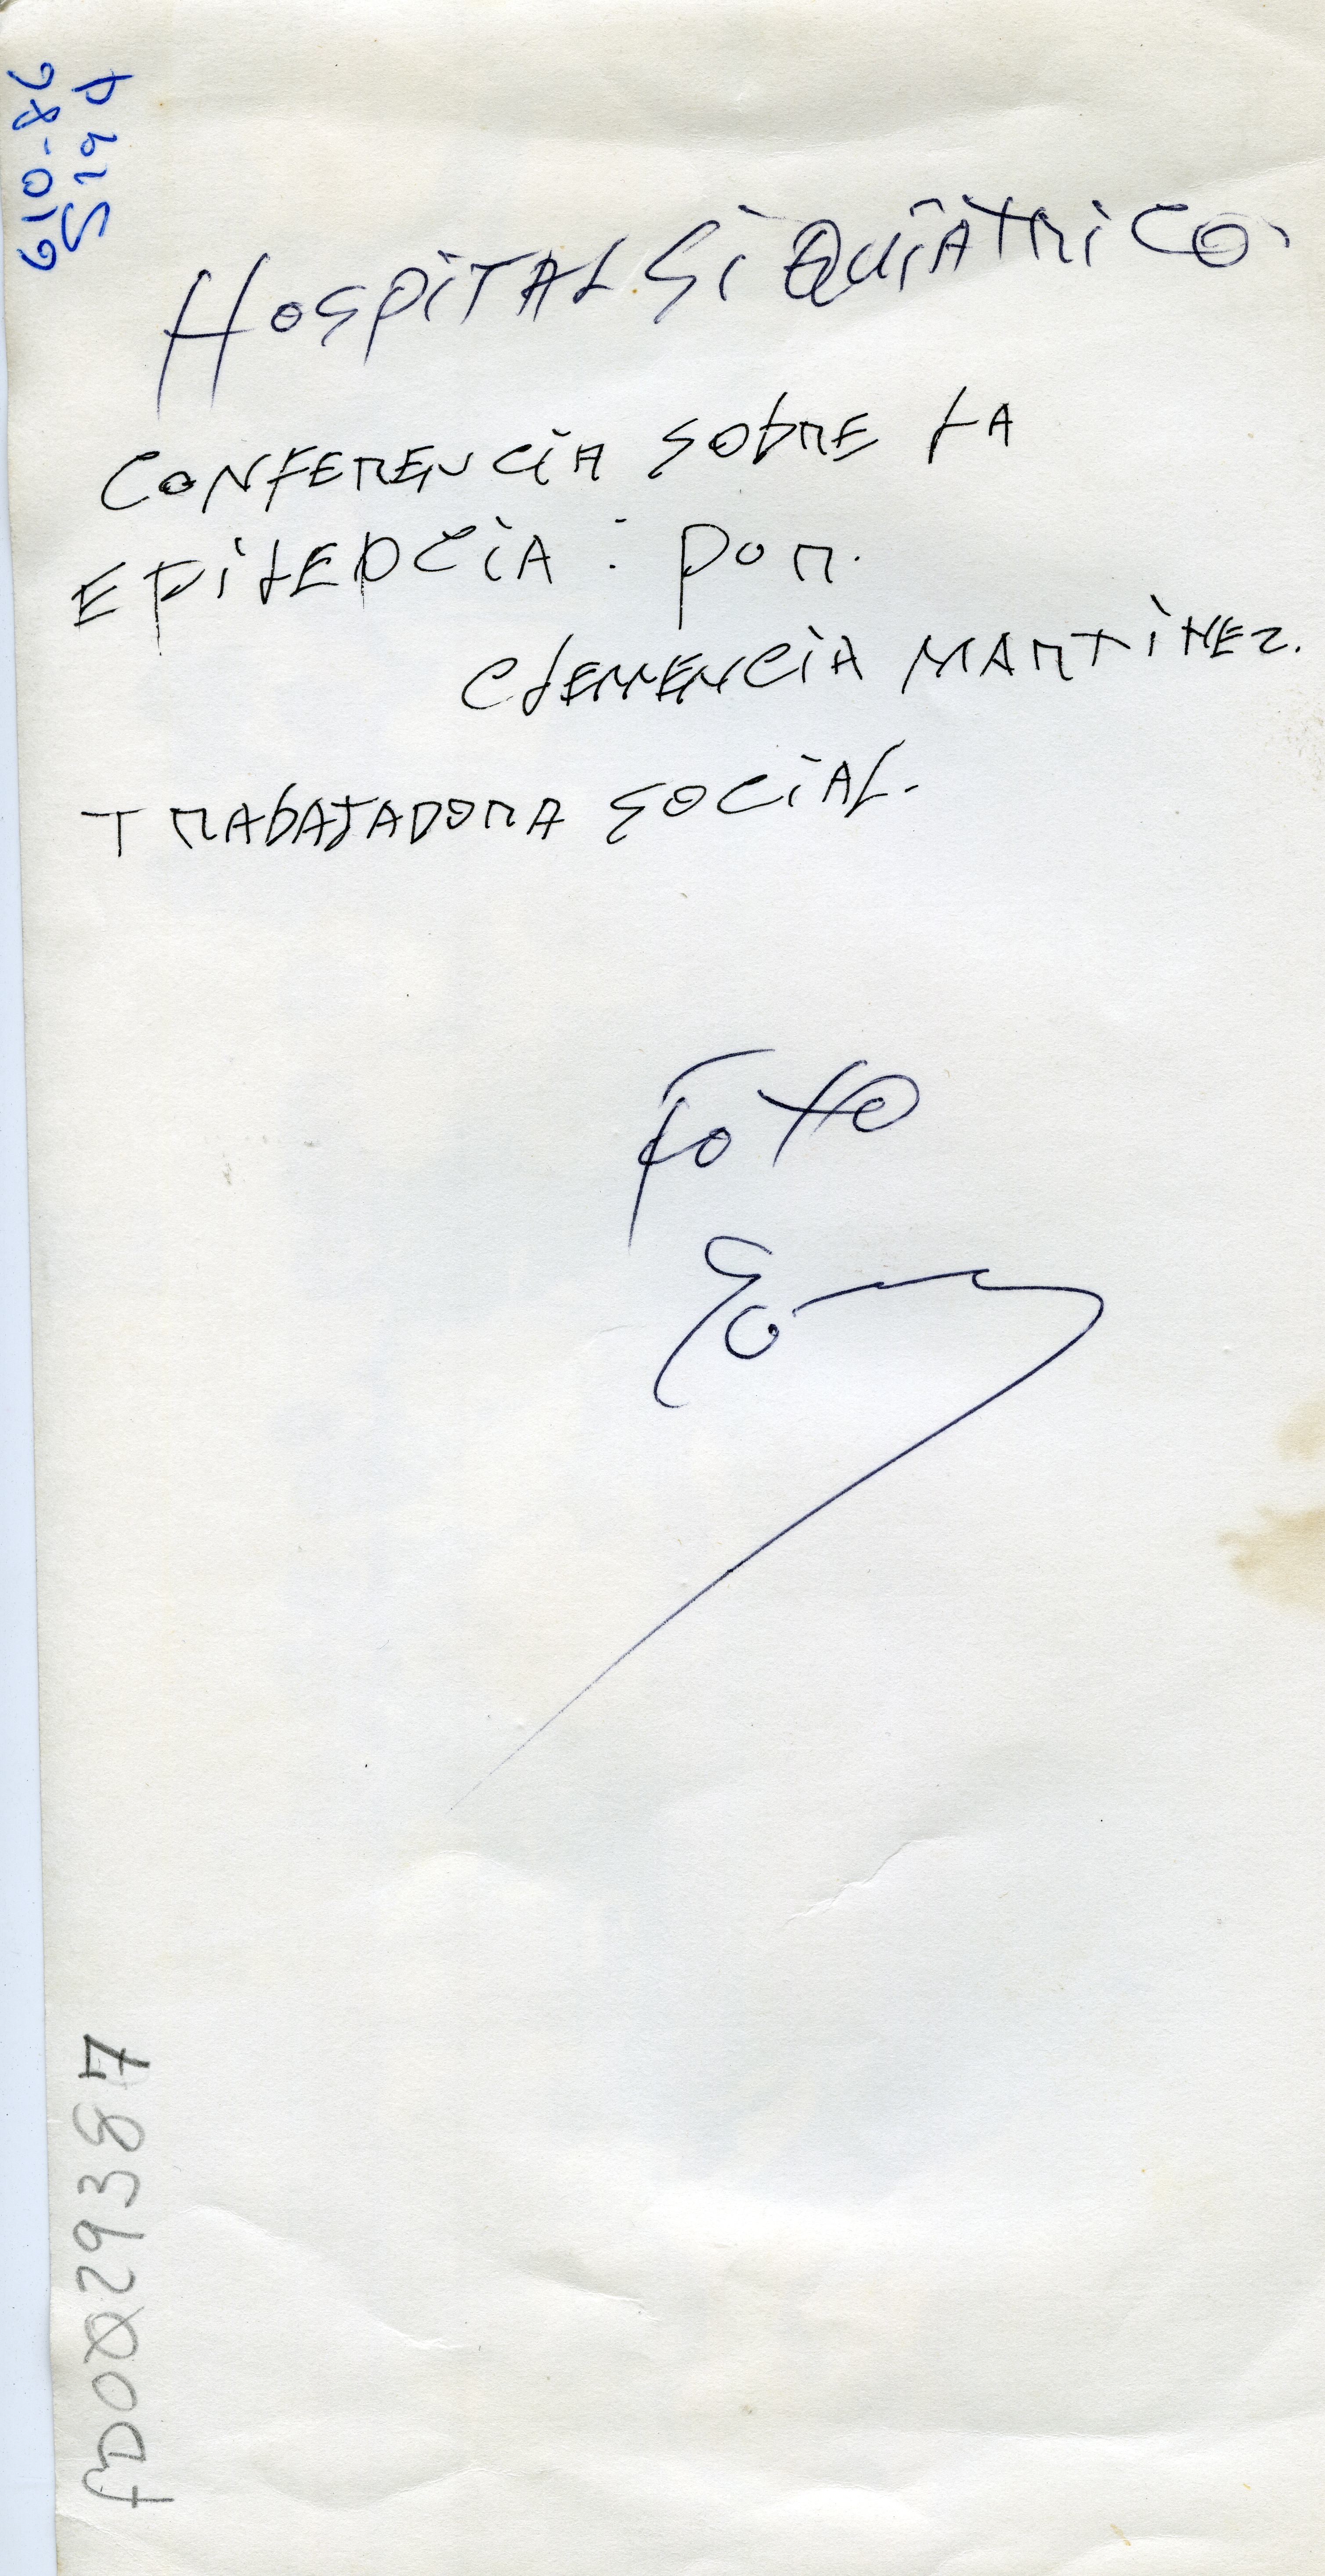 610-86
HOSPITAL SIQUIATRICO.
CONFERENCIA SOBRE LA
EPILEPCIA : POR.
CLEMENCIA MARTINEZ.
TRABAJADORA SOCIAL.
FOTO
fD0029387